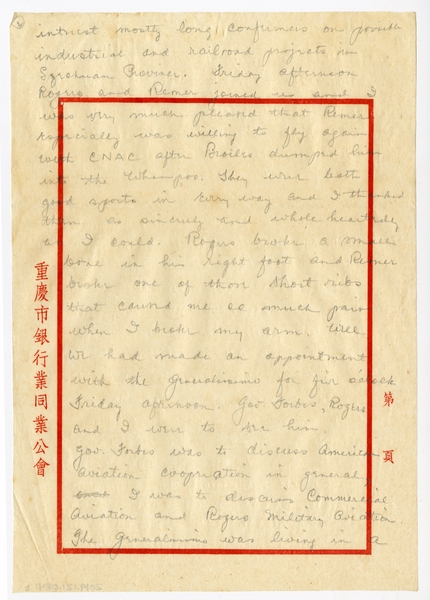 intrest mostly long confrences on possible
industrial and railroad projects in
Szechuan Province. Friday afternoon
Rogers and Remer joined us and I
was very much pleased that Remer
especially was willing to fly again
with CNAC after Broiles dumped him
into the Whampoo. They were both
good sports in every way and I thanked
them as sincerely and whole heartedly
as I could. Rogers broke a small
bone in his right foot and Remer
broke one of those short ribs
that caused me so much pain
when I broke my arm.
We had made an appointment
with the Generalissimo for five o'clock
Friday afternoon. Gov. Forbes, Rogers
and I were to see him
Gov. Forbes was to discuss American
aviation cooperation in general,
I was to discuss Commercial
Aviation and Rogers Military Aviation
The Generalissimo was living in a
重慶市銀行業同業公會
第 頁